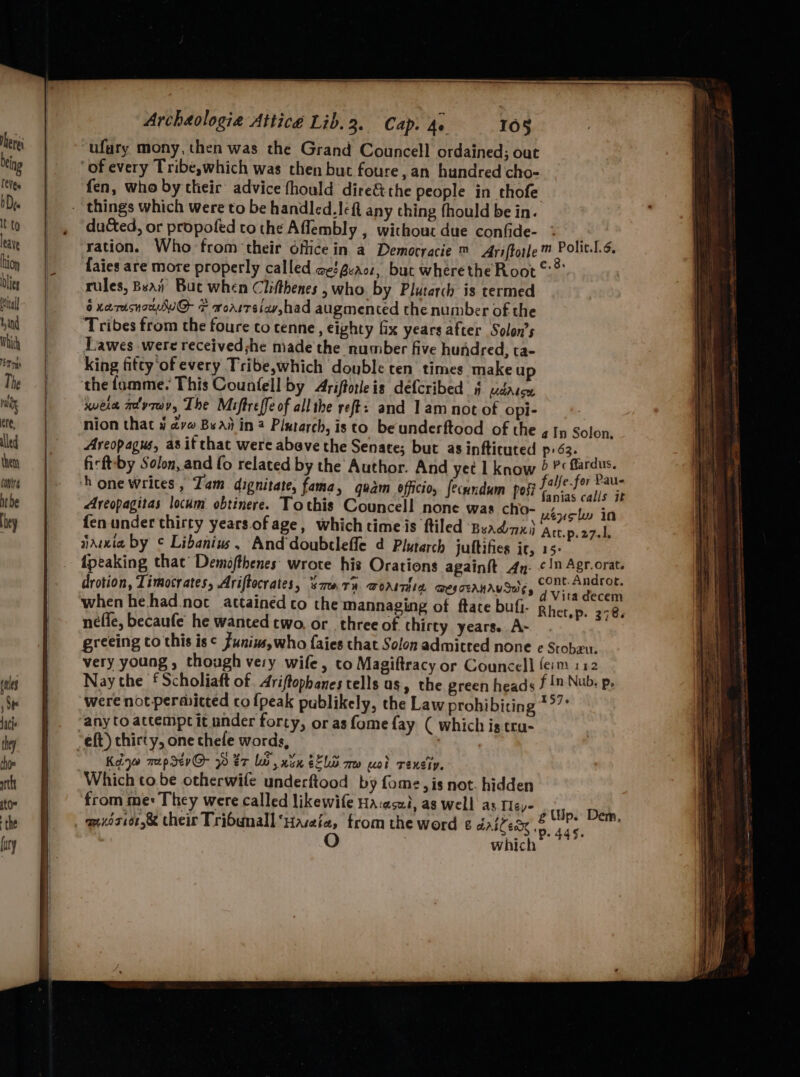 Archæologiæ Atticæ Lib. 3. Cap. 4. 105
usury mony, then was the Grand Councell ordained; out
of every Tribe, which was then but foure, an hundred cho-
sen, who by their advice should direct the people in those
things which were to be handled. lest any thing should be in-
ducted, or proposed to the Assembly, without due conside-
ration. Who from their office in a Democracie m Aristotle
saies are more properly called
but where the Root
rules, Βυλή But when Clisthenes, who by Plutarch is termed
had augmented the number of the
Tribes from the foure to tenne, eighty six years after Solon's
Lawes were received; he made the number five hundred, ta-
king fifty of every Tribe, which double ten times make up
the summe. This Counsell by Aristotle is described
The Mistresse of all the rest: and I am not of opi-
nion that ἡ ἄνω Βυλὴ in a Plutarch, is to be understood of the
Areopagus, as if that were above the Senate; but as instituted
first by Solon, and so related by the Author. And yet I know
h one writes, Tam dignitate, fama, quàm officio, secundum post
Areopagitas locum obtinere. To this Councell none was cho-
sen under thirty years of age, which time is stiled
by c Libanius. And doubtlesse d Plutarch justifies it,
speaking that Demosthenes wrote his Orations against An-
drotion, Timocrates, Aristocrates,
when he had not attained to the mannaging of state busi-
nesse, because he wanted two or three of thirty years. A-
greeing to this is e Junius, who saies that Solon admitted none
very young, though very wise, to Magistracy or Councell
Nay the f Scholiast of Aristophanes tells us, the green heads
were not permitted to speak publikely, the Law prohibiting
any to attempt it under forty, or as some say (which is tru-
est) thirty, one these words,
Which to be otherwise understood by some, is not hidden
from me. They were called likewise
as well as
& their Tribunall
from the word
O which
m Polit.l.6.
c.8.
a In Solon.
p. 63.
b Pc ssardus.
false. for Pau-
sanias calls it
in
Att.p.27.l.
15.
c In Agr. orat.
cont. Androt.
d Vita decem
Rhet. p. 378.
e Stobæu.
serm 112
f In Nub. p.
157.
g Ulp. Dem.
p. 445.